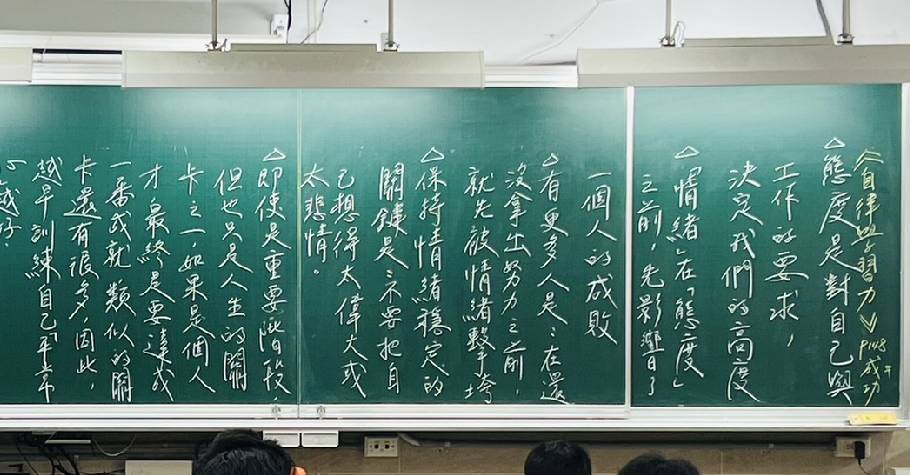 《自律與學習力》P148成功
△態度是對自己與
工作的要求，
決定我們的高度
△「情緒」在「態度」
之前，先影響了
一個人的成敗
△有更多人是：在還
沒拿出努力之前，
就先被情緒擊垮
△保持情緒穩定的
關鍵是：不要把自
己想得太偉大或
太悲情。
△即使是重要階段，
但也只是人生的關
卡之一，如果是個人
才，最終是要達成
一番成就，類似的關
卡還有很多，因此，
越早訓練自己「平常
心」越好。